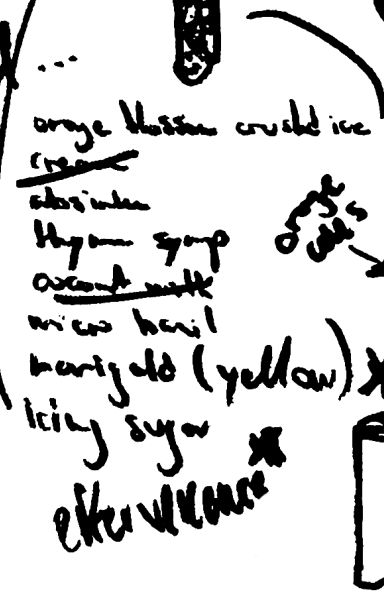 orange blossom crushed ice
cream
absinthe
thyme syrup
coconut milk
micro basil
marigold (yellow)
icing sugar
effervescence